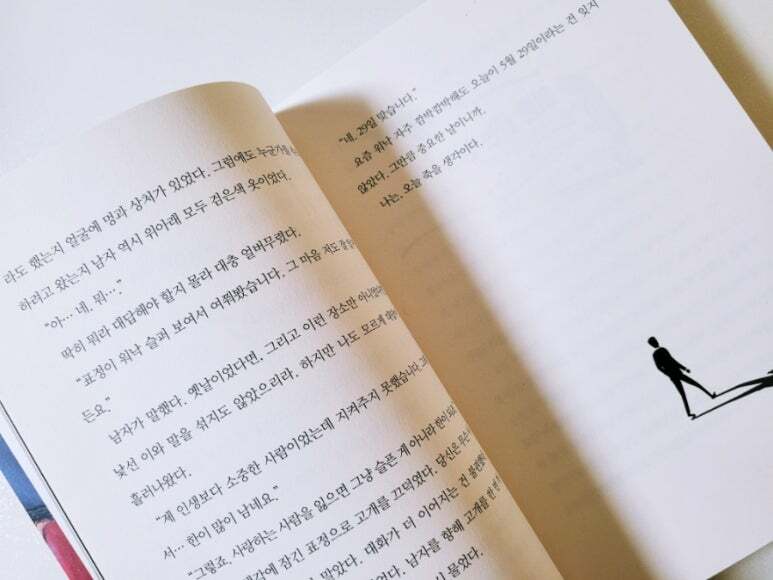 라도 했는지 얼굴에 멍과 상처가 있었다. 그럼에도 누군가를
하려고 왔는지 남자 역시 위아래 모두 검은색 옷이었다.
“아… 네, 뭐….”
딱히 뭐라 대답해야 할지 몰라 대충 얼버무렸다.
“표정이 워낙 슬퍼 보여서 여쭤봤습니다. 그 마음 저도 잘
든요.”
남자가 말했다. 옛날이었다면, 그리고 이런 장소만
낯선 이와 말을 섞지도 않았으리라. 하지만 나도 모르게
흘러나왔다.
“제 인생보다 소중한 사람이었는데 지켜주지 못했습니다.
서… 한이 많이 남네요.”
“그렇죠, 사랑하는 사람을 잃으면 그냥 슬픈 게 아니라 한이
생각에 잠긴 표정으로 고개를 끄덕였다. 당신은
맞았다. 대화가 더 이어지는 건
남자를 향해 고개를 한 번
물었다.
“네, 29일 맞습니다.”
요즘 워낙 자주 깜박깜박해도 오늘이 5월 29일이라는 건 잊지
않았다. 그만큼 중요한 날이니까.
나는, 오늘 죽을 생각이다.